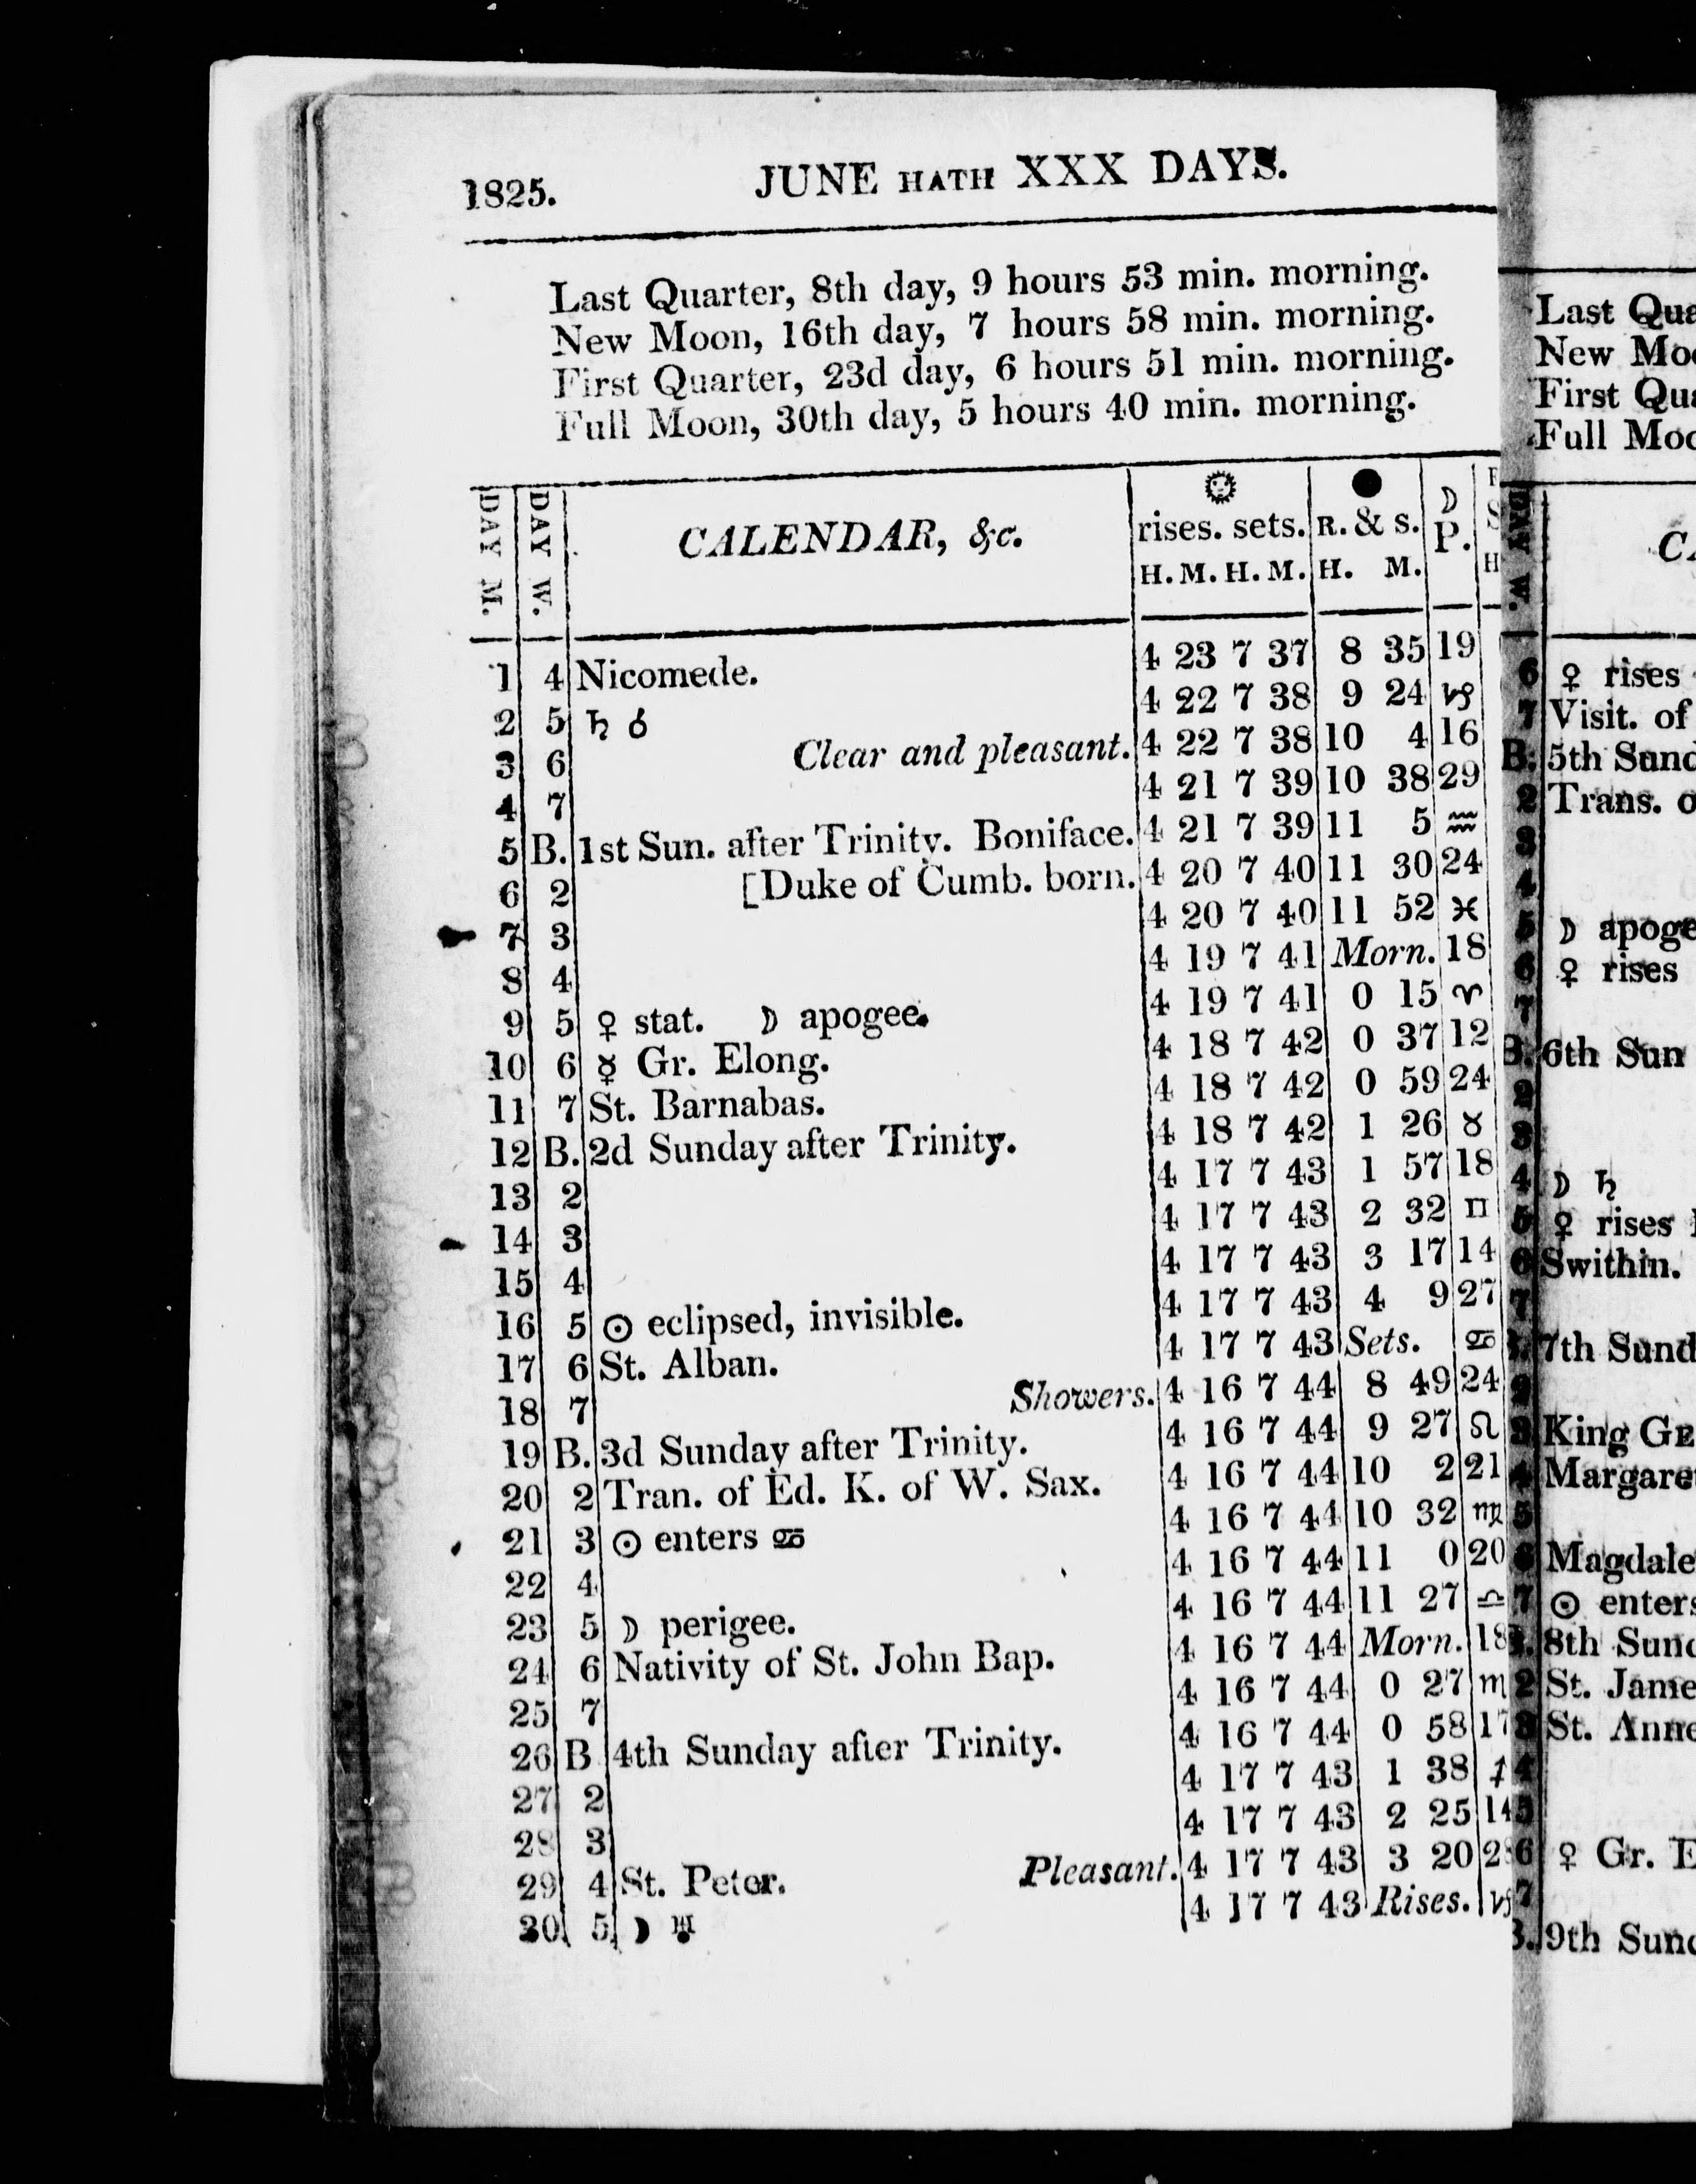 1825.
JUNE HATH XXX DAYS.
Last Quarter, 8th day, 9 hours 53 min. morning.
New Moon, 16th day, 7 hours 58 min. morning.
First Quarter, 23d day, 6 hours 51 min. morning.
Full Moon, 30th day, 5 hours 40 min. morning.
DAY M. DAY W. CALENDAR, &c. rises. sets. R. & S. ☽ P.
H. M. H. M. H. M.
1 4 Nicomede. 4 23 7 37 8 35 19
2 5 ♄ ☌ 4 22 7 38 9 24 ♑
3 6 Clear and pleasant. 4 22 7 38 10 4 16
4 7 4 21 7 39 10 38 29
5 B. 1st Sun. after Trinity. Boniface. 4 21 7 39 11 5 ♒
6 2 [Duke of Cumb. born. 4 20 7 40 11 30 24
7 3 4 20 7 40 11 52 ♓
8 4 4 19 7 41 Morn. 18
9 5 ♀ stat. ☽ apogee. 4 19 7 41 0 15 ♈
10 6 ☿ Gr. Elong. 4 18 7 42 0 37 12
11 7 St. Barnabas. 4 18 7 42 0 59 24
12 B. 2d Sunday after Trinity. 4 18 7 42 1 26 ♉
13 2 4 17 7 43 1 57 18
14 3 4 17 7 43 2 32 ♊
15 4 4 17 7 43 3 17 14
16 5 ☉ eclipsed, invisible. 4 17 7 43 4 9 27
17 6 St. Alban. 4 17 7 43 Sets. ♋
18 7 Showers. 4 16 7 44 8 49 24
19 B. 3d Sunday after Trinity. 4 16 7 44 9 27 ♌
20 2 Tran. of Ed. K. of W. Sax. 4 16 7 44 10 2 21
21 3 ☉ enters ♋ 4 16 7 44 10 32 ♍
22 4 4 16 7 44 11 0 20
23 5 ☽ perigee. 4 16 7 44 11 27 ♎
24 6 Nativity of St. John Bap. 4 16 7 44 Morn. 18
25 7 4 16 7 44 0 27 ♏
26 B 4th Sunday after Trinity. 4 16 7 44 0 58 17
27 2 4 17 7 43 1 38 ♐
28 3 4 17 7 43 2 25 14
29 4 St. Peter. Pleasant. 4 17 7 43 3 20 28
30 5 ☽ ♅ 4 17 7 43 Rises. ♑
Last Qua
New Moo
First Qua
Full Moo
DAY W. CA
6 ♀ rises
7 Visit. of
B. 5th Sund
2 Trans. o
3
4
5 ☽ apoge
6 ♀ rises
7
B. 6th Sun
2
3
4 ☽ ♄
5 ♀ rises
6 Swithin.
7
7th Sund
2
3 King GE
4 Margaret
5
6 Magdale
7 ☉ enters
8th Sund
2 St. Jame
3 St. Anne
4
5
6 ♀ Gr. E
7
B. 9th Sund